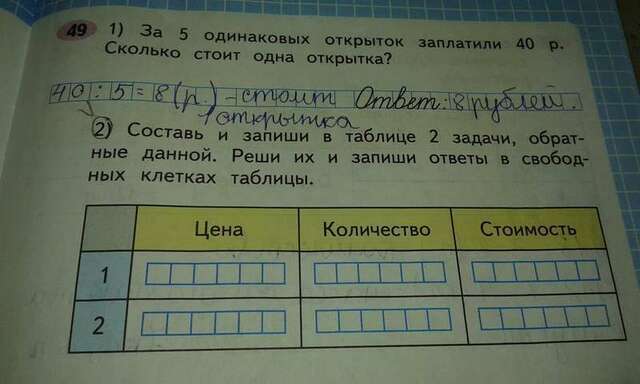 49 1) За 5 одинаковых открыток заплатили 40 р.
Сколько стоит одна открытка?
40:5=8(р.) - стоит Ответ: 8 рублей.
1 открытка
2) Составь и запиши в таблице 2 задачи, обрат-
ные данной. Реши их и запиши ответы в свобод-
ных клетках таблицы.
Цена Количество Стоимость
1
2